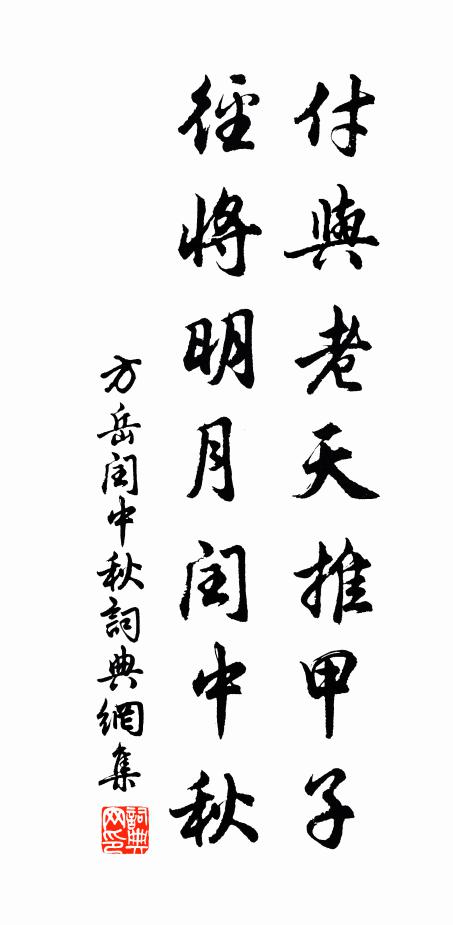 付與老天推甲子
徑將明月閏中秋
方岳閏中秋詞典網集
詞典
网印